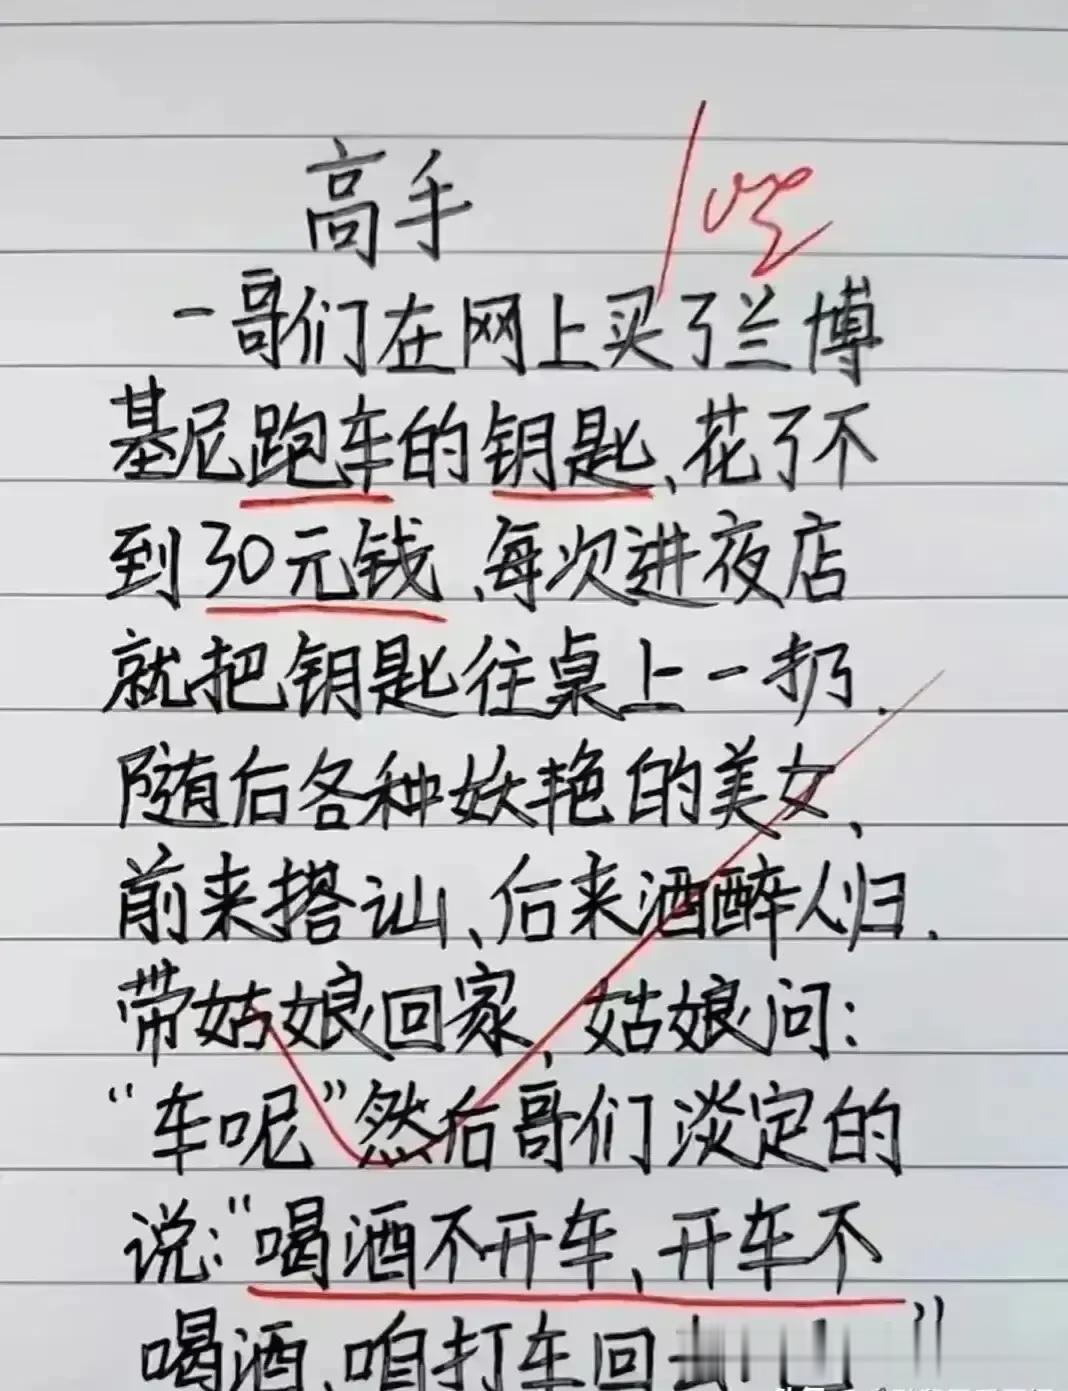 高手
一哥们在网上买了兰博
基尼跑车的钥匙、花了不
到30元钱、每次进夜店
就把钥匙往桌上一扔.
随后各种妖艳的美女、
前来搭讪、后来酒醉人归.
带姑娘回家、姑娘问:
“车呢”然后哥们淡定的
说:“喝酒不开车、开车不
喝酒.咱打车回去”